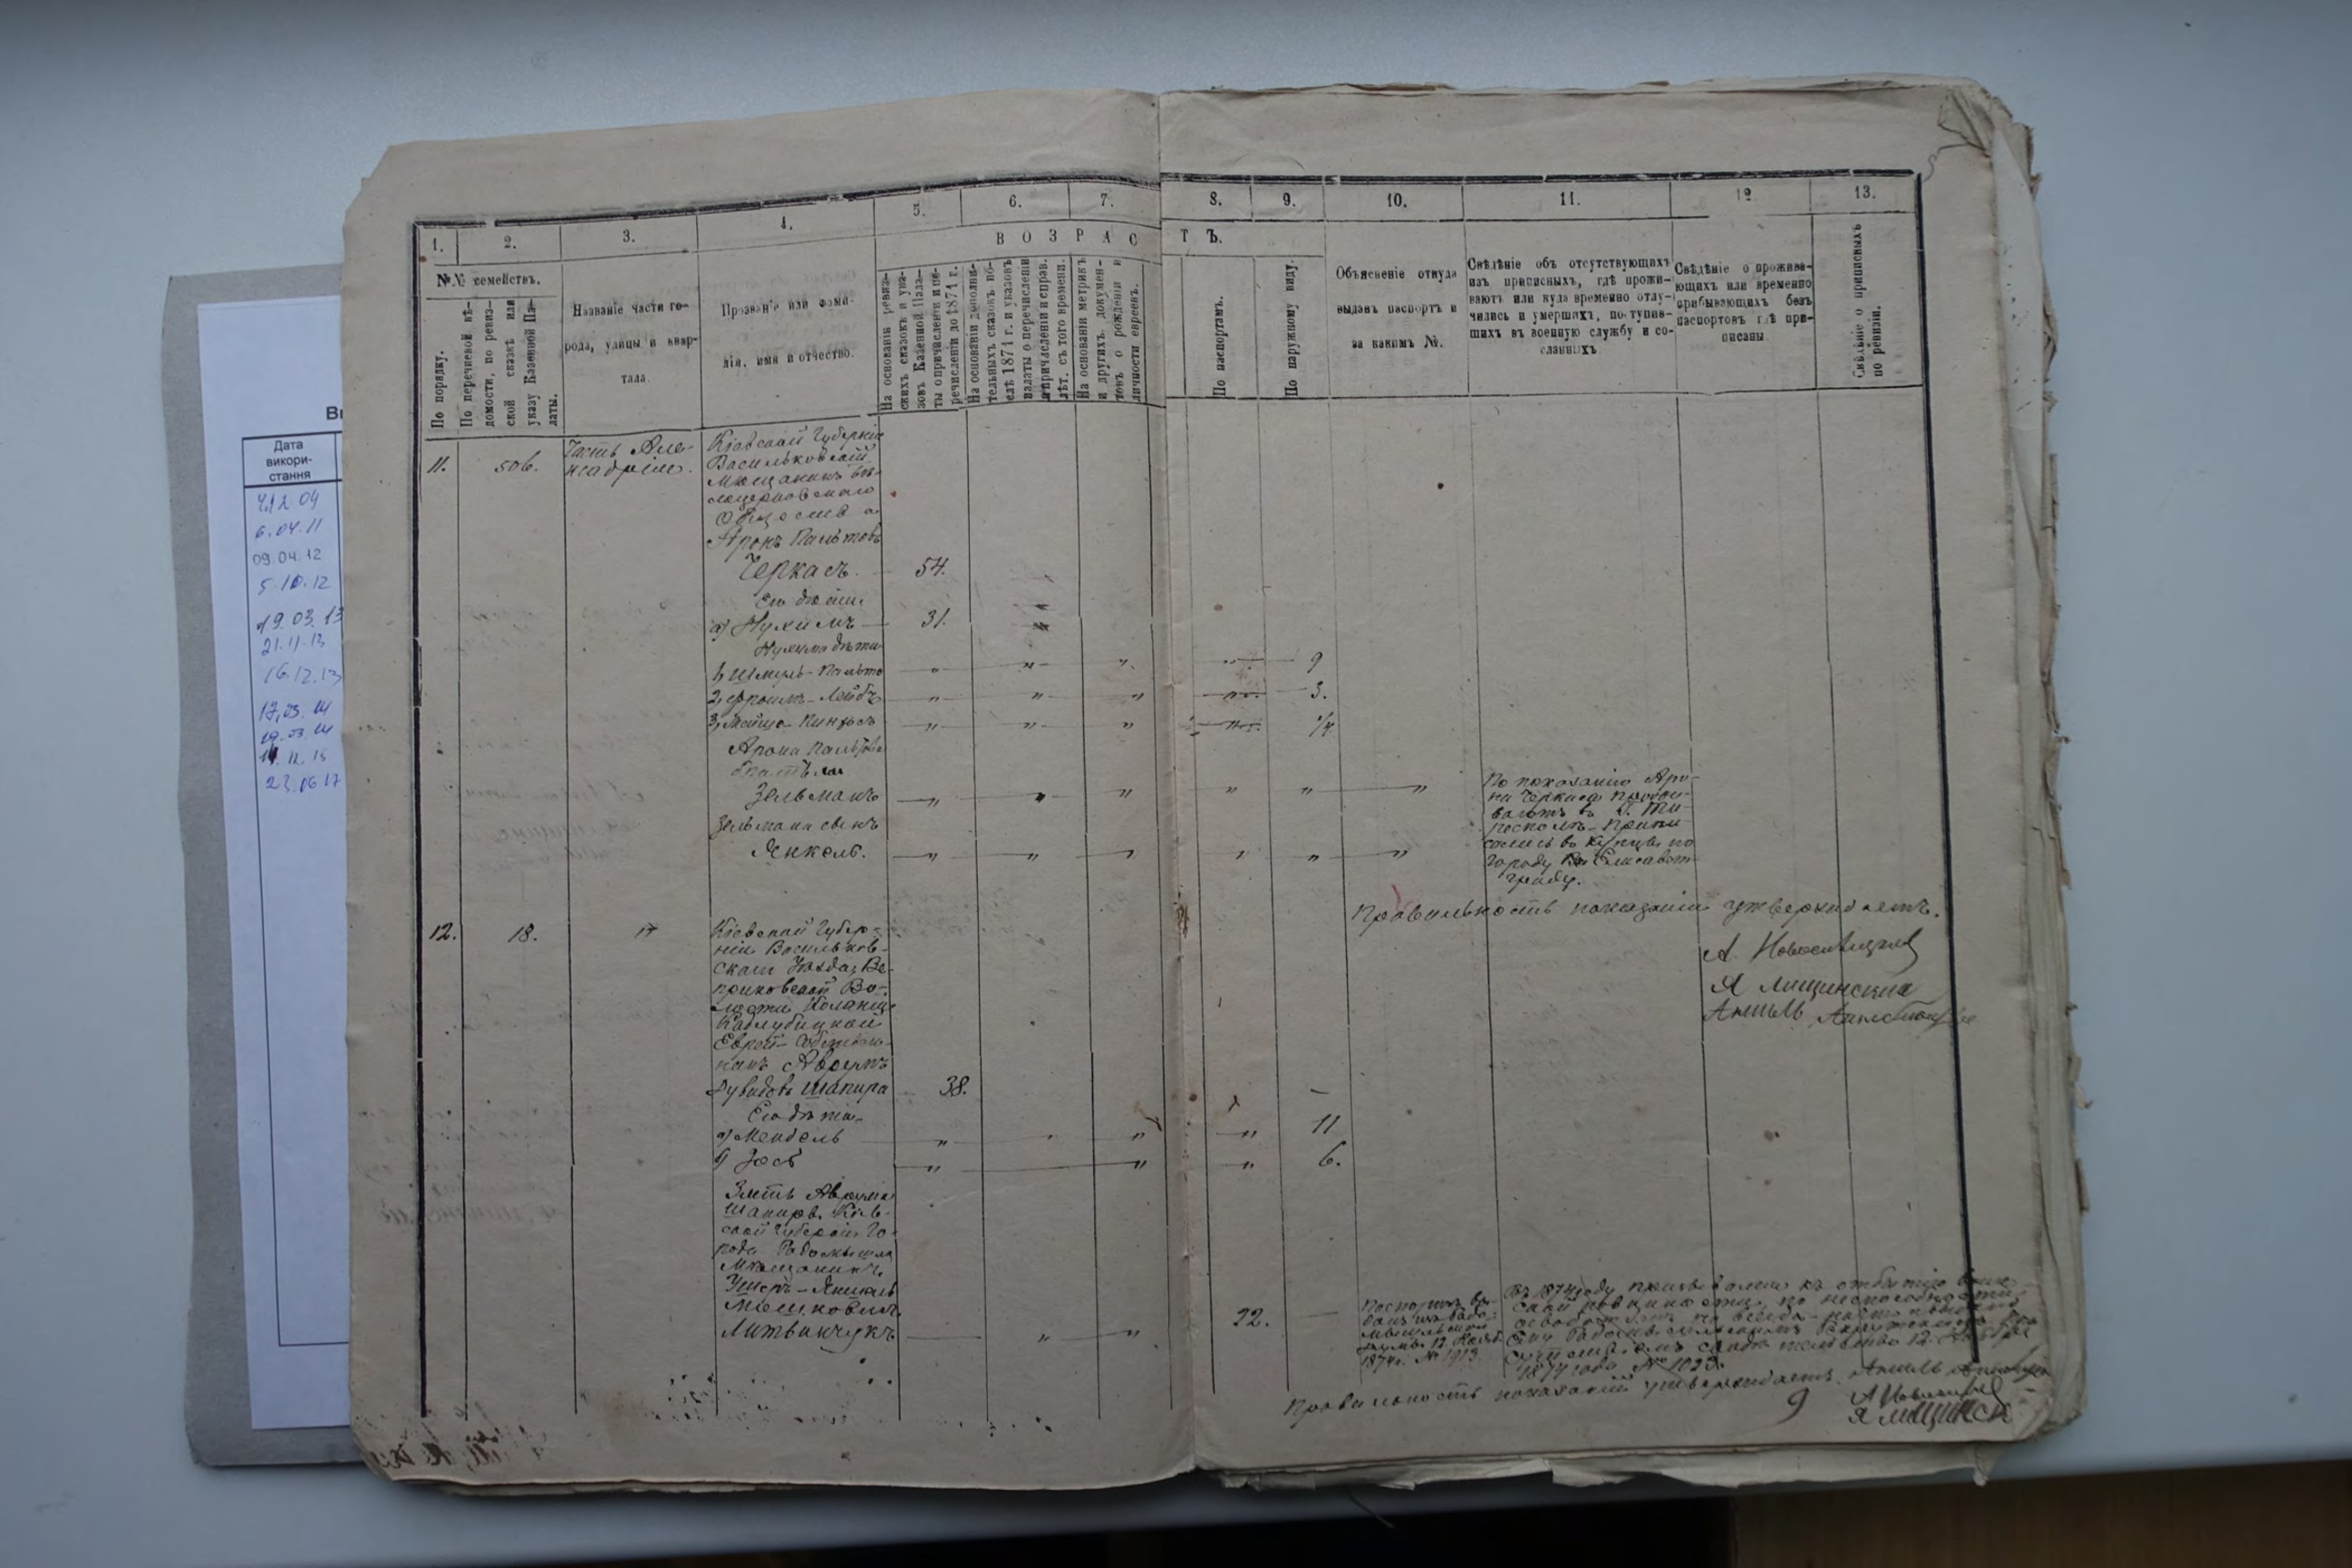 Дата
викори-
стання
6.04.11
09.04.12
5.10.12
19.03.13
21.11.13
16.12.13
23.06.17
1.
2.
3.
4.
5.
6.
7.
8.
9.
10.
11.
12.
13.
В О З Р А С Т Ъ.
№№ семействъ.
По порядку.
По перечневой вѣ-
домости, по ревиз-
ской сказкѣ или
указу Казенной Па-
латы.
Названіе части го-
рода, улицы и квар-
тала.
Прозваніе или фами-
лія, имя и отчество.
На основаніи ревиз-
скихъ сказокъ и ука-
зовъ Казенной Пала-
ты о причисленіи и пе-
речисленіи до 1871 г.
На основаніи дополни-
тельныхъ сказокъ по-
слѣ 1871 г. и указовъ
палаты о перечисленіи
и причисленіи и справ.
лѣт. съ того времени.
На основаніи метрикъ
и другихъ докумен-
товъ о рожденіи и
личности евреевъ.
По паспортамъ.
По наружному виду.
Объясненіе откуда
выданъ паспортъ и
за какимъ №.
Свѣдѣніе объ отсутствующихъ
изъ приписныхъ, гдѣ прожи-
ваютъ или куда временно отлу-
чились и умершихъ, поступив-
шихъ въ военную службу и со-
сланныхъ
Свѣдѣніе о прожива-
ющихъ или временно
прибывающихъ безъ
паспортовъ гдѣ при-
писаны
Свѣдѣніе о приписныхъ
по ревизіи.
11.
506.
Часть Але-
ксадріи.
Кіевской Губерніи
Васильковскій
Мещанинъ Бѣ-
лоцерковскаго
Общества
Аронъ Пальтовъ
Черкасъ. 54.
Его дѣти
а) Нухимъ 31.
Нухима дѣти
1, Шмуль-Пальто " " " " 9
2, Фроимъ-Лейбъ " " " " 3.
3, Мойше-Пинхосъ " " " " 1/4
Арона Пальтова
братья
Зельманъ " " " " " "
Зельмана сынъ
Янкель. " " " " " "
По показанію Аро-
на Черкаса прожи-
ваютъ въ Г. Ти-
располѣ-Припи-
сались въ Купцы по
городу Елисавет-
граду.
Правильность показанія утверждаемъ.
А Новоселицкій
Я Лищинскій
Аншель
12.
18.
Кіевской Губер-
ніи Васильков-
скаго Уѣзда, Ве-
приковской Во-
лости Колоніи
Каплубицкой
Еврей-Собствен-
никъ Аврумъ
Рувидовъ Шапира 38.
Его дѣти
а) Мендель " " " 11
б) Іось " " " 6.
Зять Аврума
Шапиры Кіев-
ской Губерніи Го-
рода Радомысля
Мѣщанинъ
Ушеръ-Янкель
Мошковичъ
Литвинчукъ " " 22.
Паспортъ вы-
данъ изъ Радо-
мысльской
Думы 12. Нояб.
1874г. № 1913.
Въ 1874 году призывался къ отбытію воин-
ской повинности, по неспособности
12.
1874 года № 1023.
Правильность показаній утверждаемъ. Аншель
А Новоселицкій
Я Лищинск
9